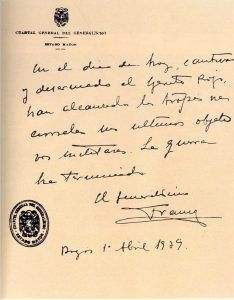 CUARTEL GENERAL DEL GENERALISIMO
ESTADO MAYOR
En el dia de hoy, cautivo
y desarmado el Ejercito Rojo,
han alcanzado las tropas na-
cionales sus ultimos objeti-
vos militares. La guerra
ha terminado
El Generalisimo
Franco
Burgos 1º Abril 1939.